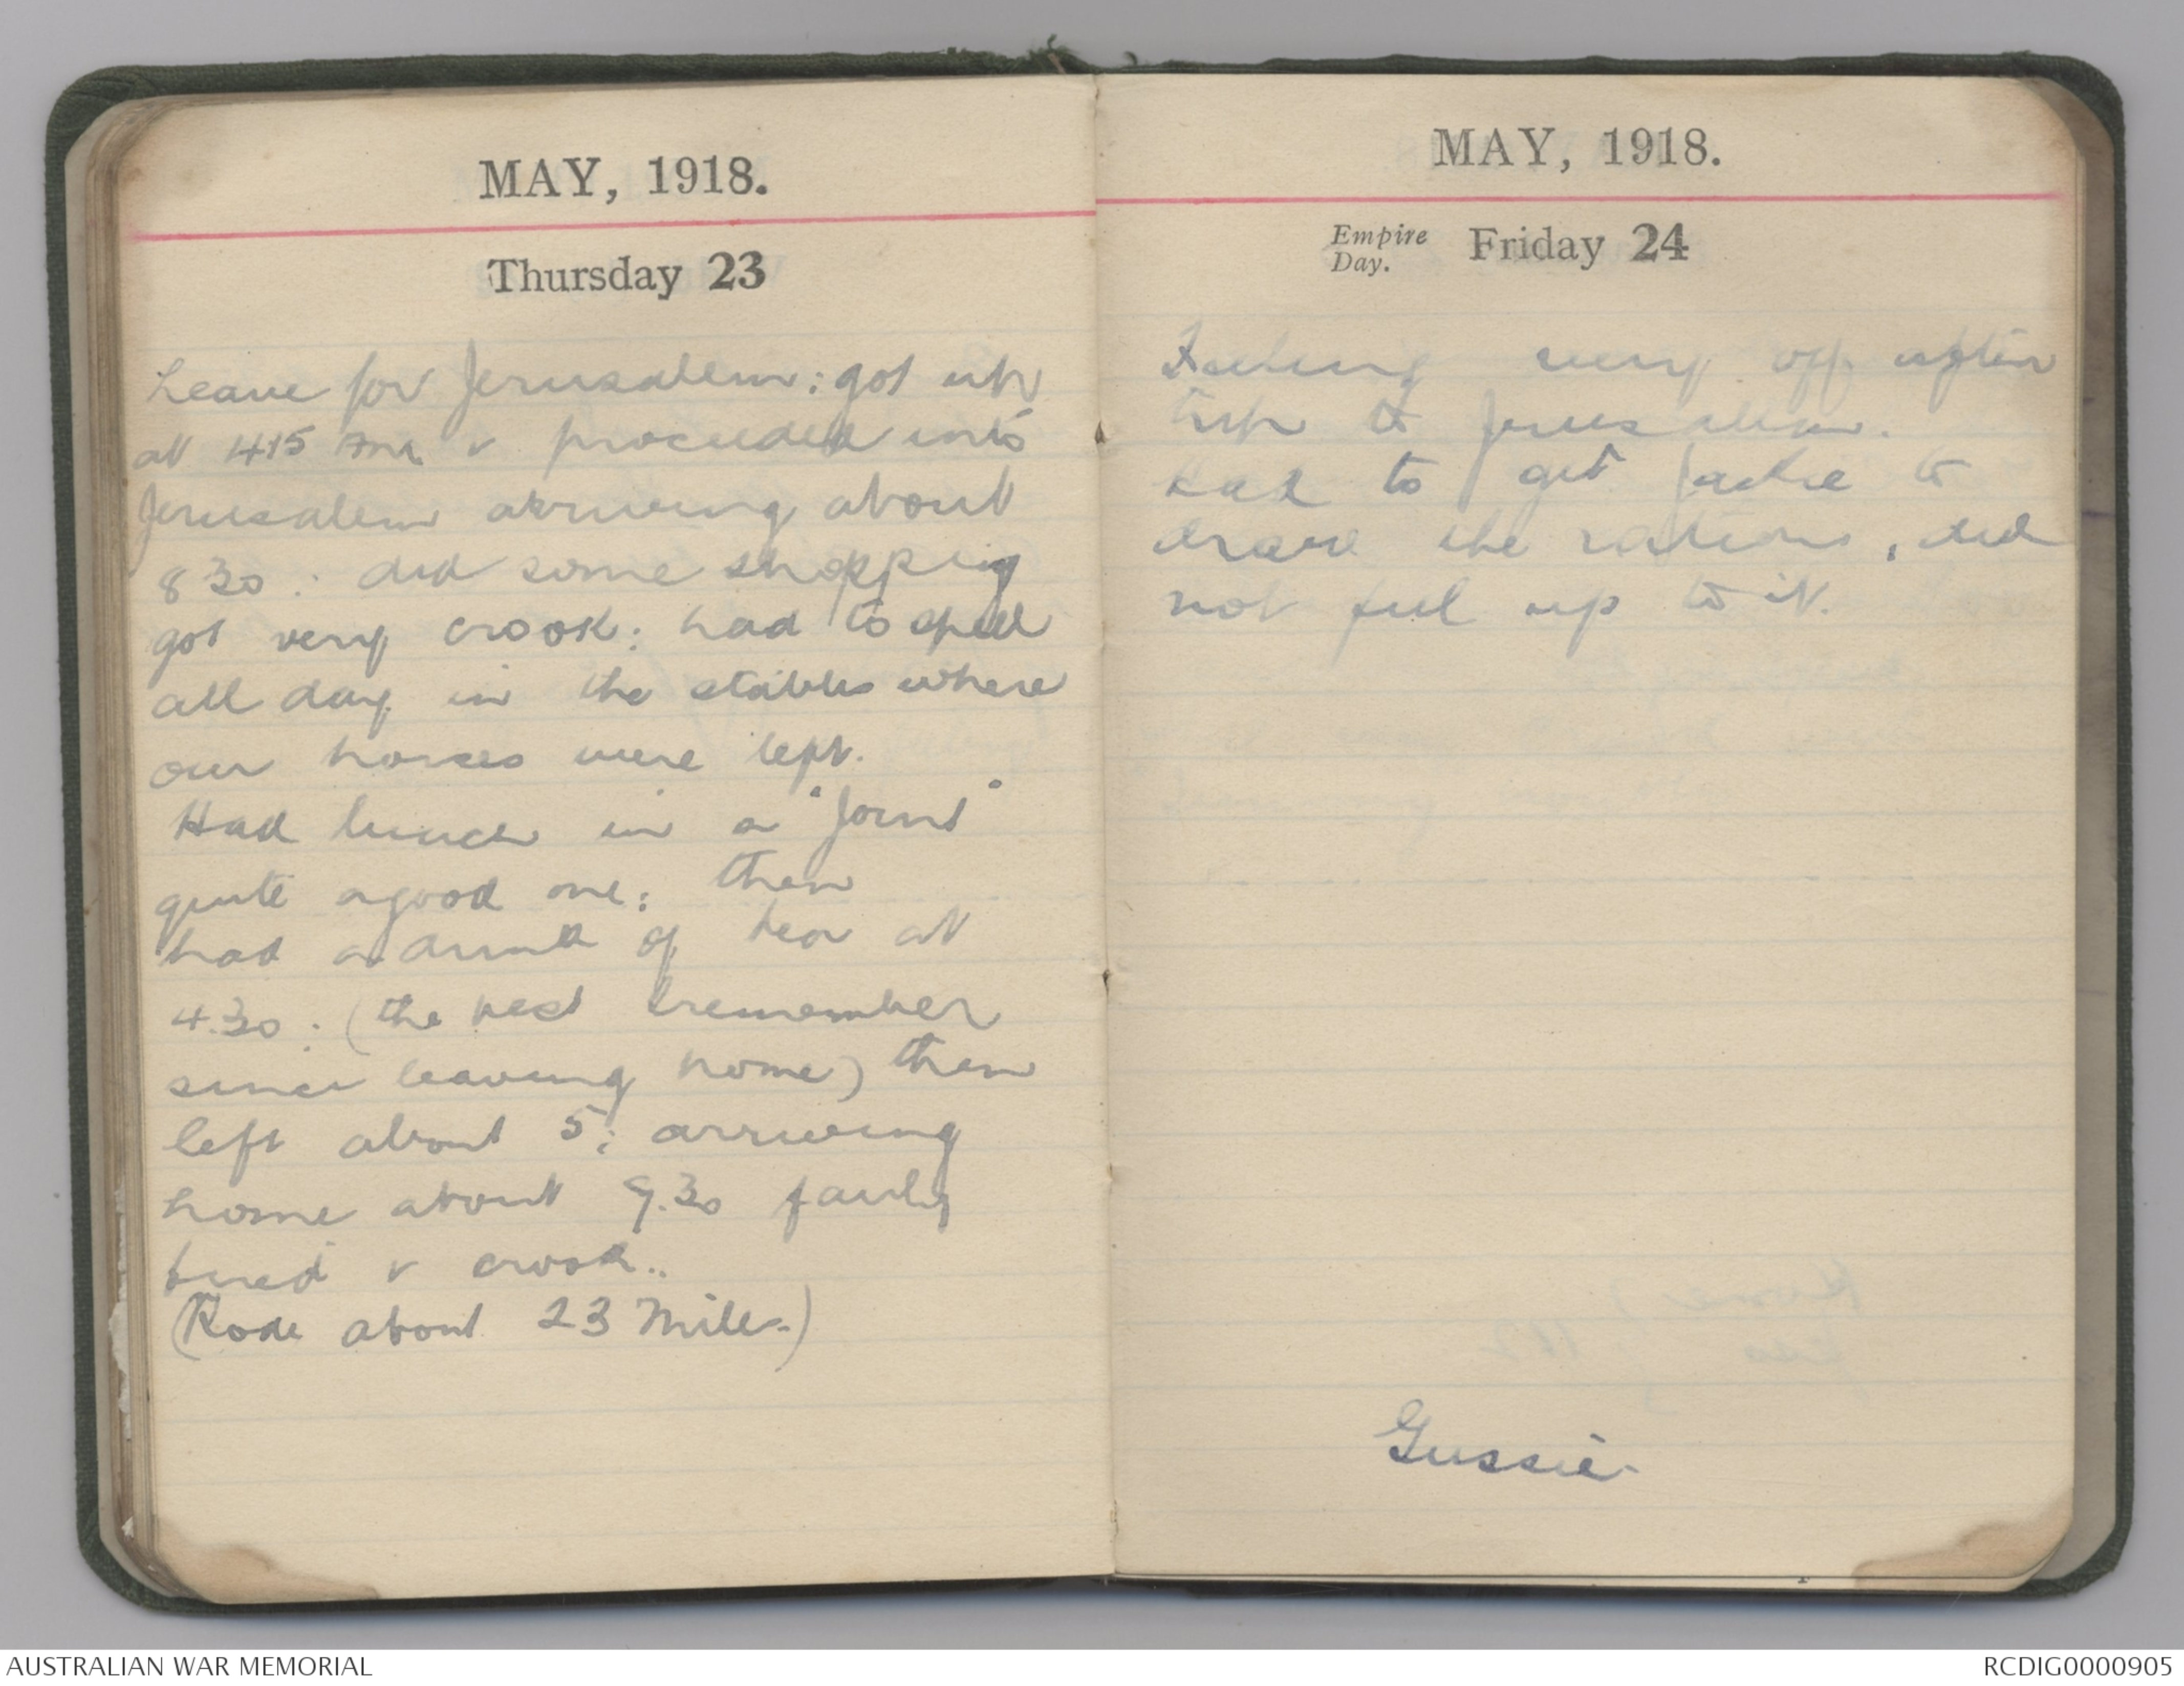 MAY, 1918.
Thursday 23
Leave for Jerusalem: got up
at 4.15 am & proceeded into
Jerusalem arriving about
8 30 : did some shopping
got very crook: had to spell
all day in the stables where
our horses were left.
Had lunch in a "Joint"
quite a good one: then
had a drink of tea at
4.30 : (the best I remember
since leaving home) then
left about 5: arriving
home about 9.30 fairly
tired & crook..
(Rode about 23 Miles.)
MAY, 1918.
Empire Day. Friday 24
Feeling very off after
trip to Jerusalem.
Had to get Jackie to
draw the rations, did
not feel up to it.
Gussie
AUSTRALIAN WAR MEMORIAL
RCDIG0000905